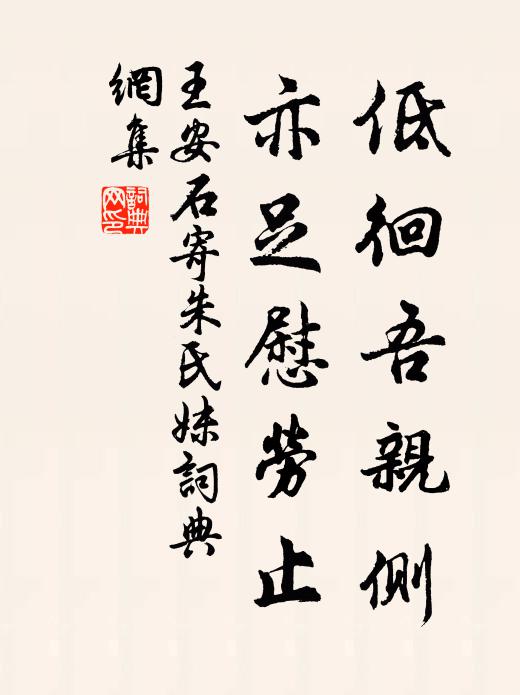 低徊吾親側
亦足慰勞止
王安石寄朱氏妹詞典
網集
詞典网印